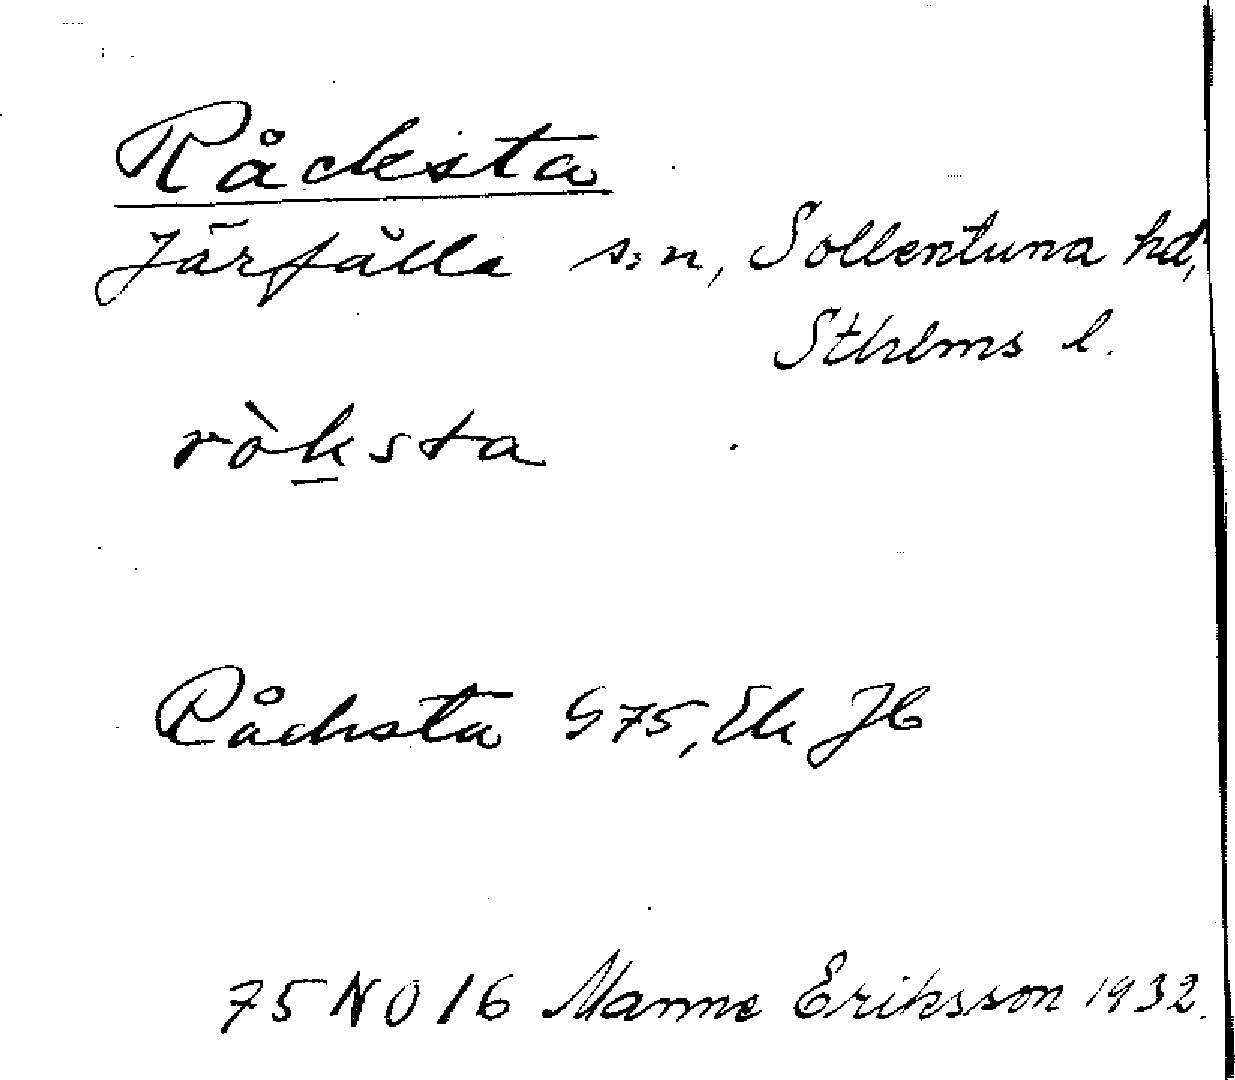 Råcksta
Järfälla sn, Sollentuna hd,
Sthlms l.
ròksta
Råcksta G75, Ek Jb
75 NO 16 Manne Eriksson 1932.